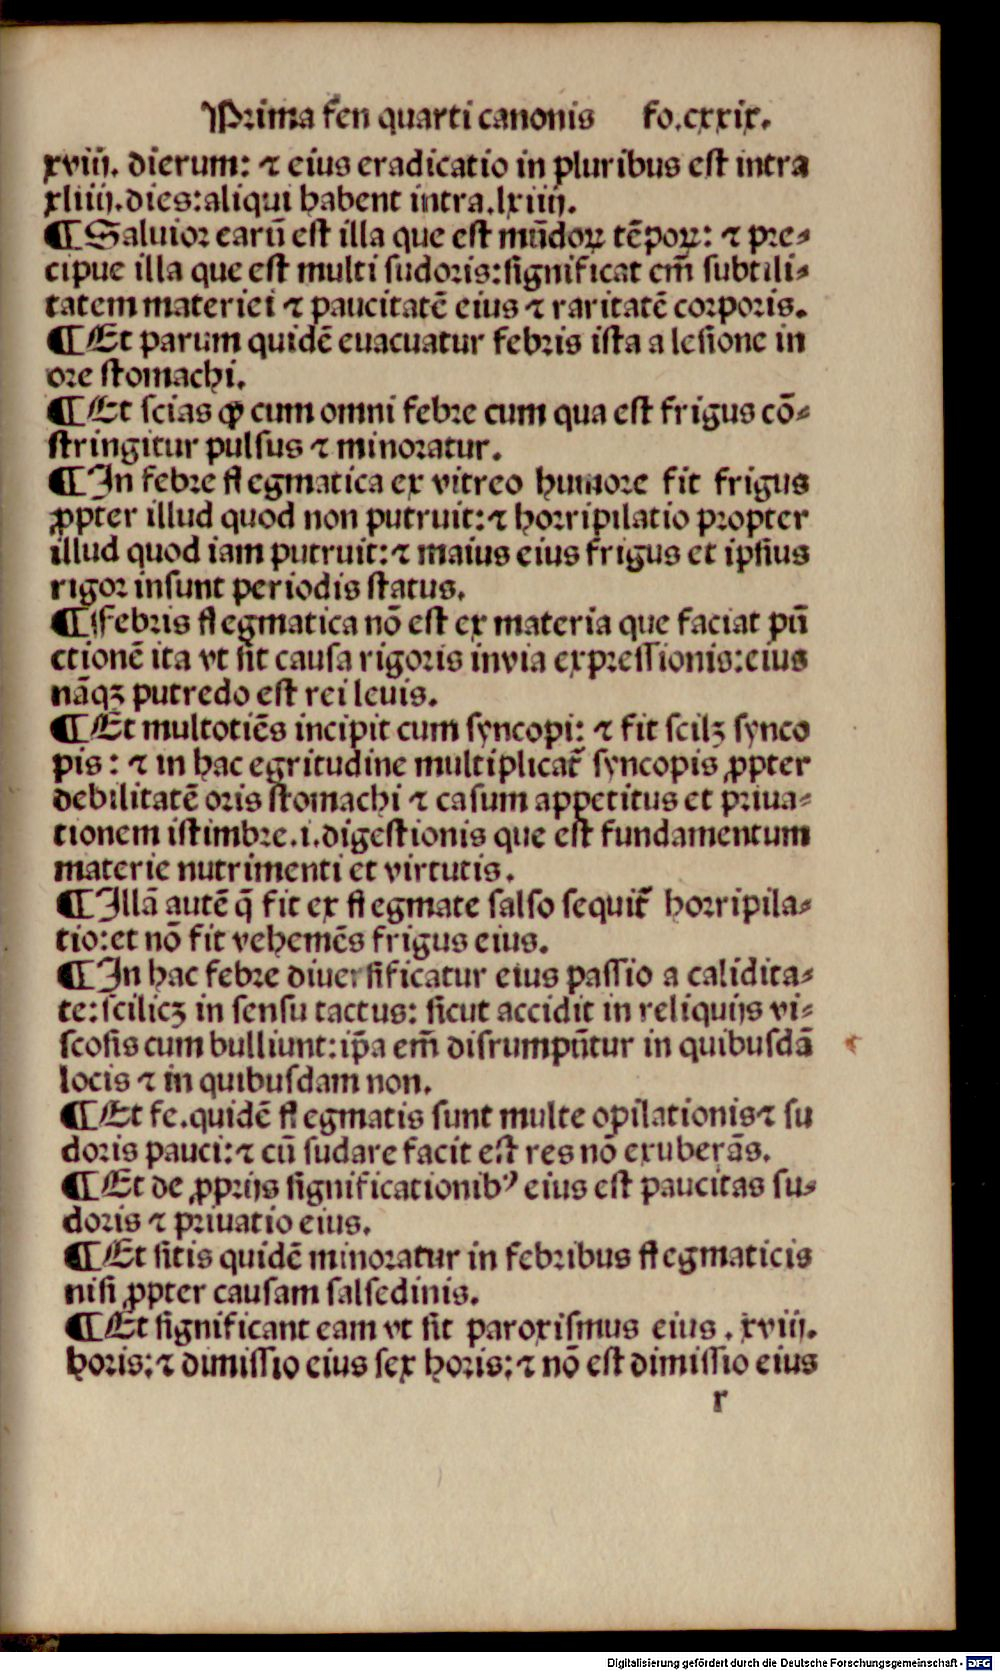 Prima fen quarti canonis fo.cxxix.
xviij. dierum: ⁊ eius eradicatio in pluribus est intra
xliiij.dies:aliqui habent intra.lxiiij.
¶ Saluior earū est illa que est mūdoꝝ tēpoꝝ: ⁊ pre-
cipue illa que est multi sudoris:significat em̄ subtili-
tatem materiei ⁊ paucitatē eius ⁊ raritatē corporis.
¶ Et parum quidē euacuatur febris ista a lesione in
ore stomachi.
¶ Et scias ꝙ cum omni febre cum qua est frigus cō-
stringitur pulsus ⁊ minoratur.
¶ In febre flegmatica ex vitreo humore fit frigus
ꝓpter illud quod non putruit:⁊ horripilatio propter
illud quod iam putruit:⁊ maius eius frigus et ipsius
rigor insunt periodis status.
¶ Febris flegmatica nō est ex materia que faciat pū
ctionē ita vt sit causa rigoris in via expressionis:eius
nāqꝫ putredo est rei leuis.
¶ Et multotiēs incipit cum syncopi: ⁊ fit scilꝫ synco
pis: ⁊ in hac egritudine multiplicat̄ syncopis ꝓpter
debilitatē oris stomachi ⁊ casum appetitus et priua-
tionem istimbre.i.digestionis que est fundamentum
materie nutrimenti et virtutis.
¶ Illā autē q̄ fit ex flegmate salso sequit̄ horripila-
tio:et nō fit vehemēs frigus eius.
¶ In hac febre diuersificatur eius passio a calidita-
te:scilicꝫ in sensu tactus: sicut accidit in reliquijs vi-
scosis cum bulliunt:ip̄a em̄ disrumpūtur in quibusdā
locis ⁊ in quibusdam non.
¶ Et fe.quidē flegmatis sunt multe opilationis⁊ su
doris pauci:⁊ cū sudare facit est res nō exuberās.
¶ Et de ꝓprijs significationibꝰ eius est paucitas su-
doris ⁊ priuatio eius.
¶ Et sitis quidē minoratur in febribus flegmaticis
nisi ꝓpter causam salsedinis.
¶ Et significant eam vt sit paroxismus eius. xviij.
horis:⁊ dimissio eius sex horis:⁊ nō est dimissio eius
r
Digitalisierung gefördert durch die Deutsche Forschungsgemeinschaft - DFG